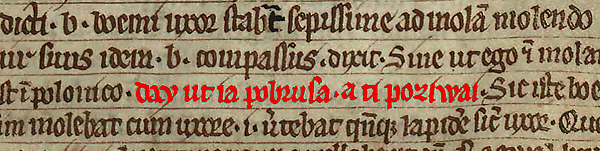 dicti · b · boemi uxor stabat sepissime ad molã molendo
vir suus idem · b · compassus · dixit · Sine ut ego ĩ molam
st ĩ polonico · day ut ia pobrusa · a ti poziwai · Sic iste boe
im molebat cum uxore · i · vertebat qñq lapidẽ sic̃ uxor · Quo